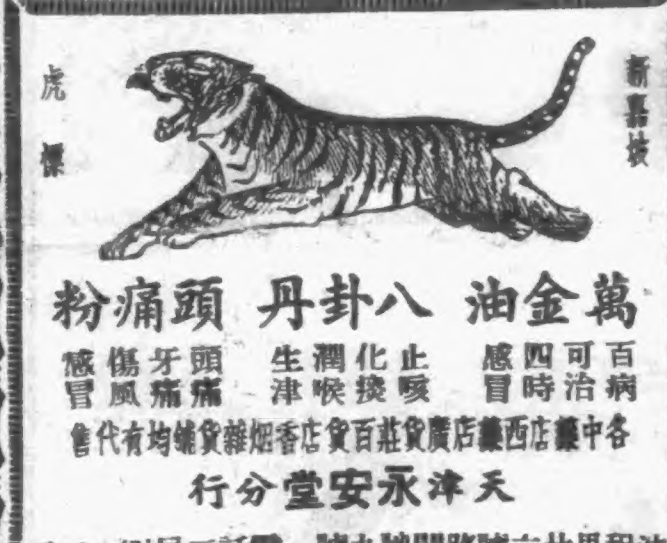 新嘉坡
虎標
萬金油 八卦丹 頭痛粉
百病 可治 四時 感冒 止咳 化痰 潤喉 生津 頭痛 牙痛 傷風 感冒
各中藥店西藥店廣貨莊百貨店香烟雜貨鋪均有代售
天津永安堂分行